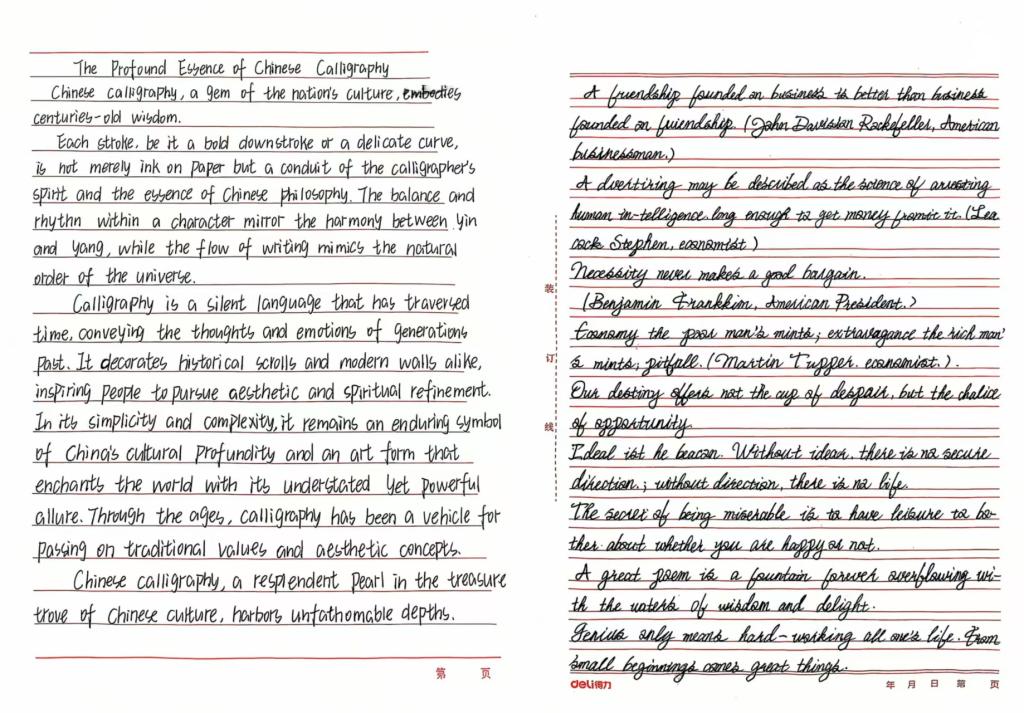 The Profound Essence of Chinese Calligraphy
Chinese calligraphy, a gem of the nation's culture, embodies
centuries-old wisdom.
Each stroke, be it a bold downstroke or a delicate curve,
is not merely ink on paper but a conduit of the calligrapher's
spirit and the essence of Chinese philosophy. The balance and
rhythn within a character mirror the harmony between yin
and yang, while the flow of writing mimics the natural
order of the universe.
Calligraphy is a silent language that has traversed
time, conveying the thoughts and emotions of generations
past. It decorates historical scrolls and modern walls alike,
inspiring people to pursue aesthetic and spiritual refinement.
In its simplicity and complexity, it remains an enduring symbol
of China's cultural profundity and an art form that
enchants the world with its understated yet powerful
allure. Through the ages, calligraphy has been a vehicle for
passing on traditional values and aesthetic concepts.
Chinese calligraphy, a resplendent pearl in the treasure
trove of Chinese culture, harbors unfathomable depths.
第 页
A friendship founded on business is better than business
founded on friendship. (John Davisian Rockefeller, American
businessman.)
A dvertiring may be described as the science of arresting
human in-telligence long enough to get money fromit it. (Lea
cock Stephen, economist)
Necessity never makes a good bargain.
(Benjamin Frankkim, American President.)
Economy the poor man's mints; extravagance the rich man'
s mints; pitfall. (Martin Tupper. economist.).
Our destiny offers not the cup of despair, but the chalice
of opportunity.
Ideal ist he beacon. Without idear, there is no secure
direction.; without direction, there is no life.
The secret of being miserable is to have leisure to bo-
ther about whether you are happy or not.
A great poem is a fountain forever overflowing wi-
th the waters of wisdom and delight.
Genius only means hard-working all one's life. From
small beginnings comes great things.
装
订
线
deli得力 年 月 日 第 页